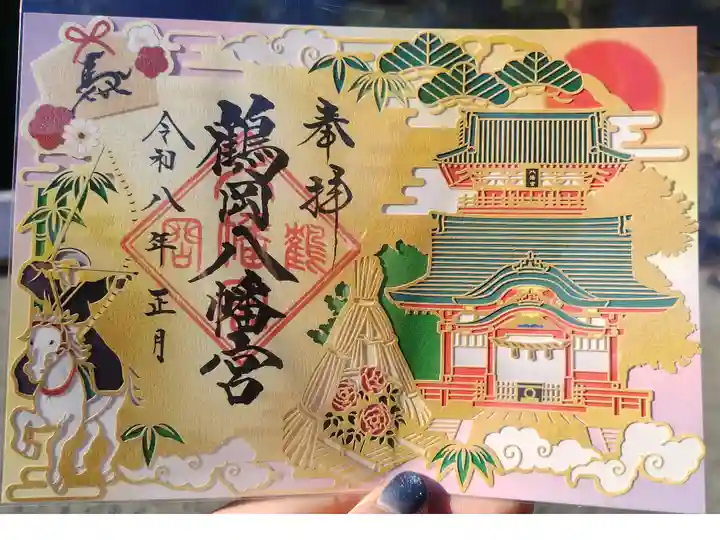 奉拝
鶴岡八幡宮
令和八年 正月
八幡宮